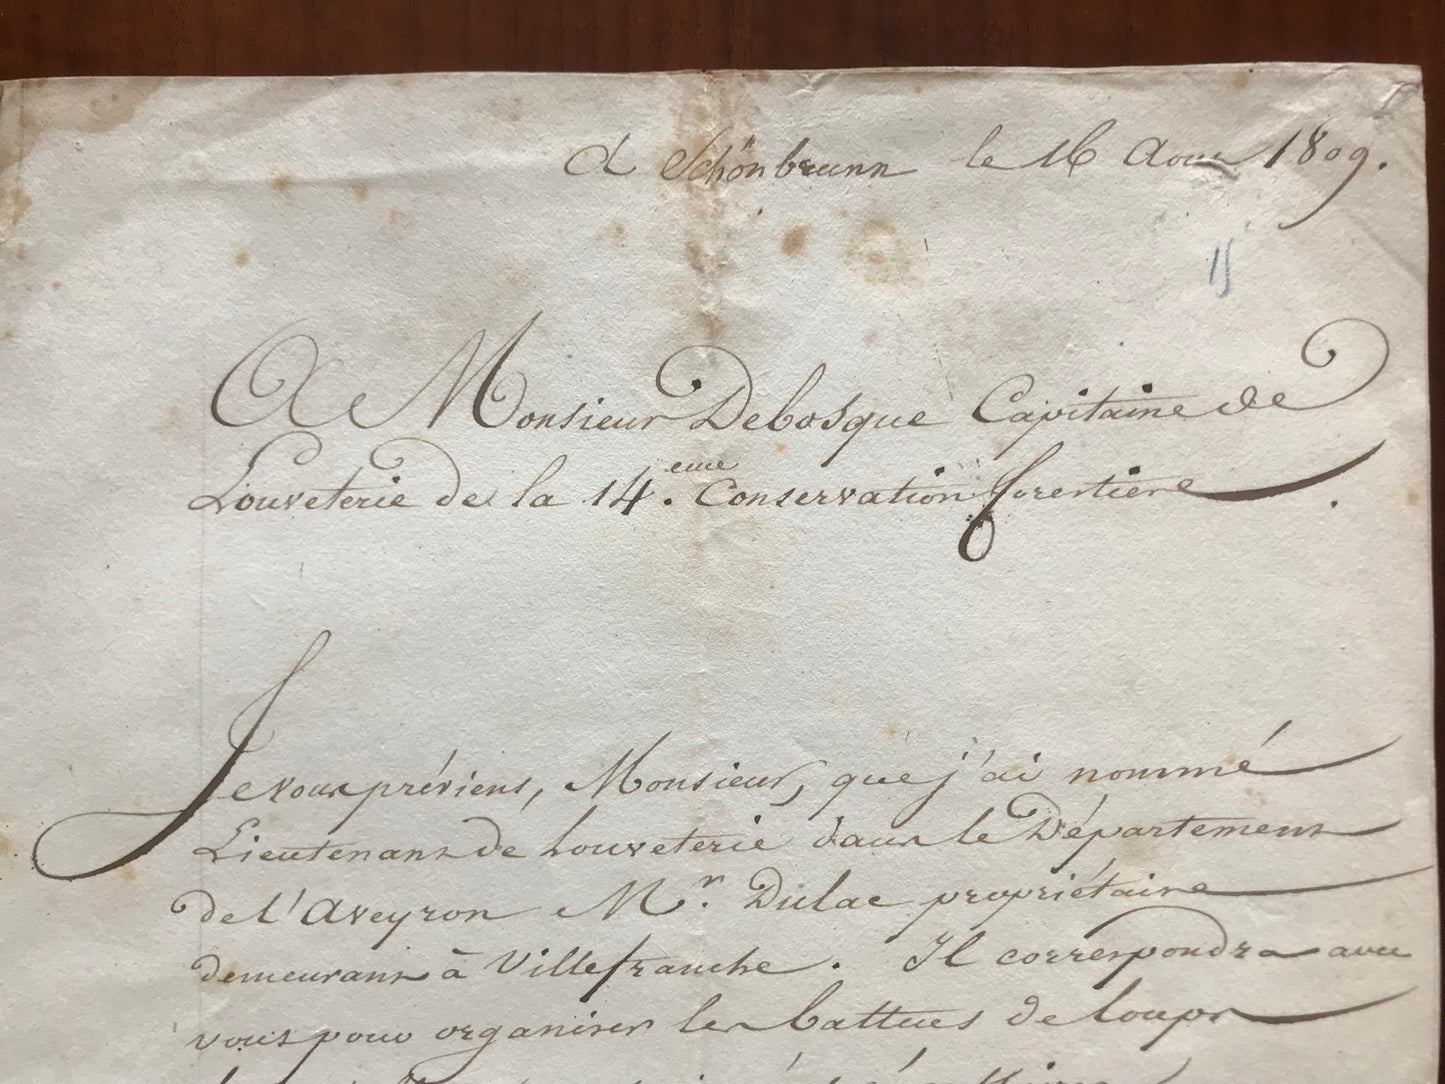 A Schönbrunn le 16 Aout 1809.
15
A Monsieur Debosque Capitaine de
Louveterie de la 14.eme Conservation forestière.
Je vous préviens, Monsieur, que j'ai nommé
Lieutenant de Louveterie dans le Département
de l'Aveyron Mr. Dulac propriétaire
demeurant à Villefranche. Il correspondra avec
vous pour organiser les battues de loups